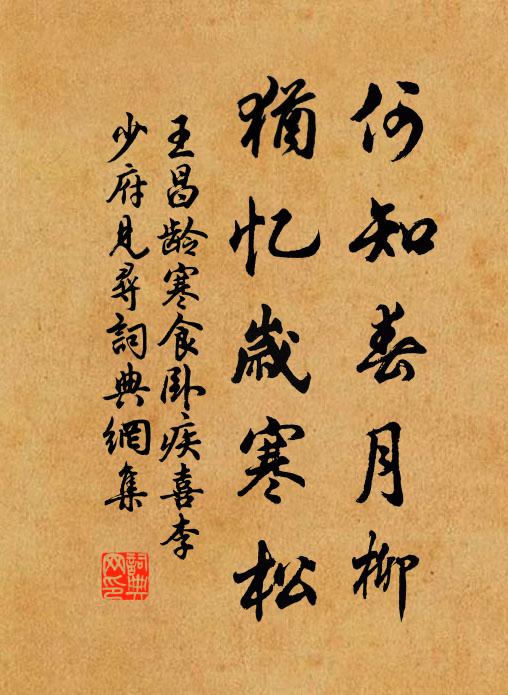 何知春月柳
猶忆歲寒松
王昌龄寒食卧疾喜李
少府見尋詞典網集
詞典网印